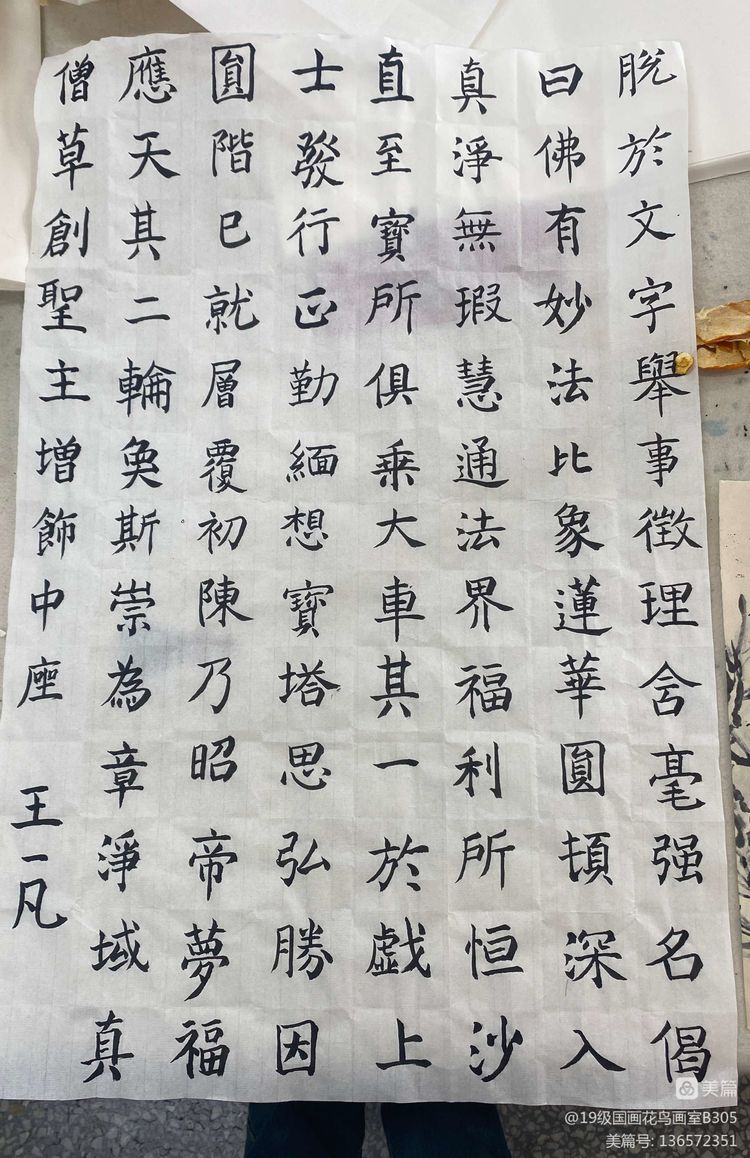 脫於文字舉事徵理含毫强名偈
曰佛有妙法比象蓮華圓頓深入
真淨無瑕慧通法界福利所恒沙
直至寶所俱乘大車其一於戲上
士發行正勤緬想寶塔思弘勝因
圓階已就層覆初陳乃昭帝夢福
應天其二輪奐斯崇為章淨域真
僧草創聖主增飾中座
王一凡
美篇
@19级国画花鸟画室B305
美篇号: 136572351